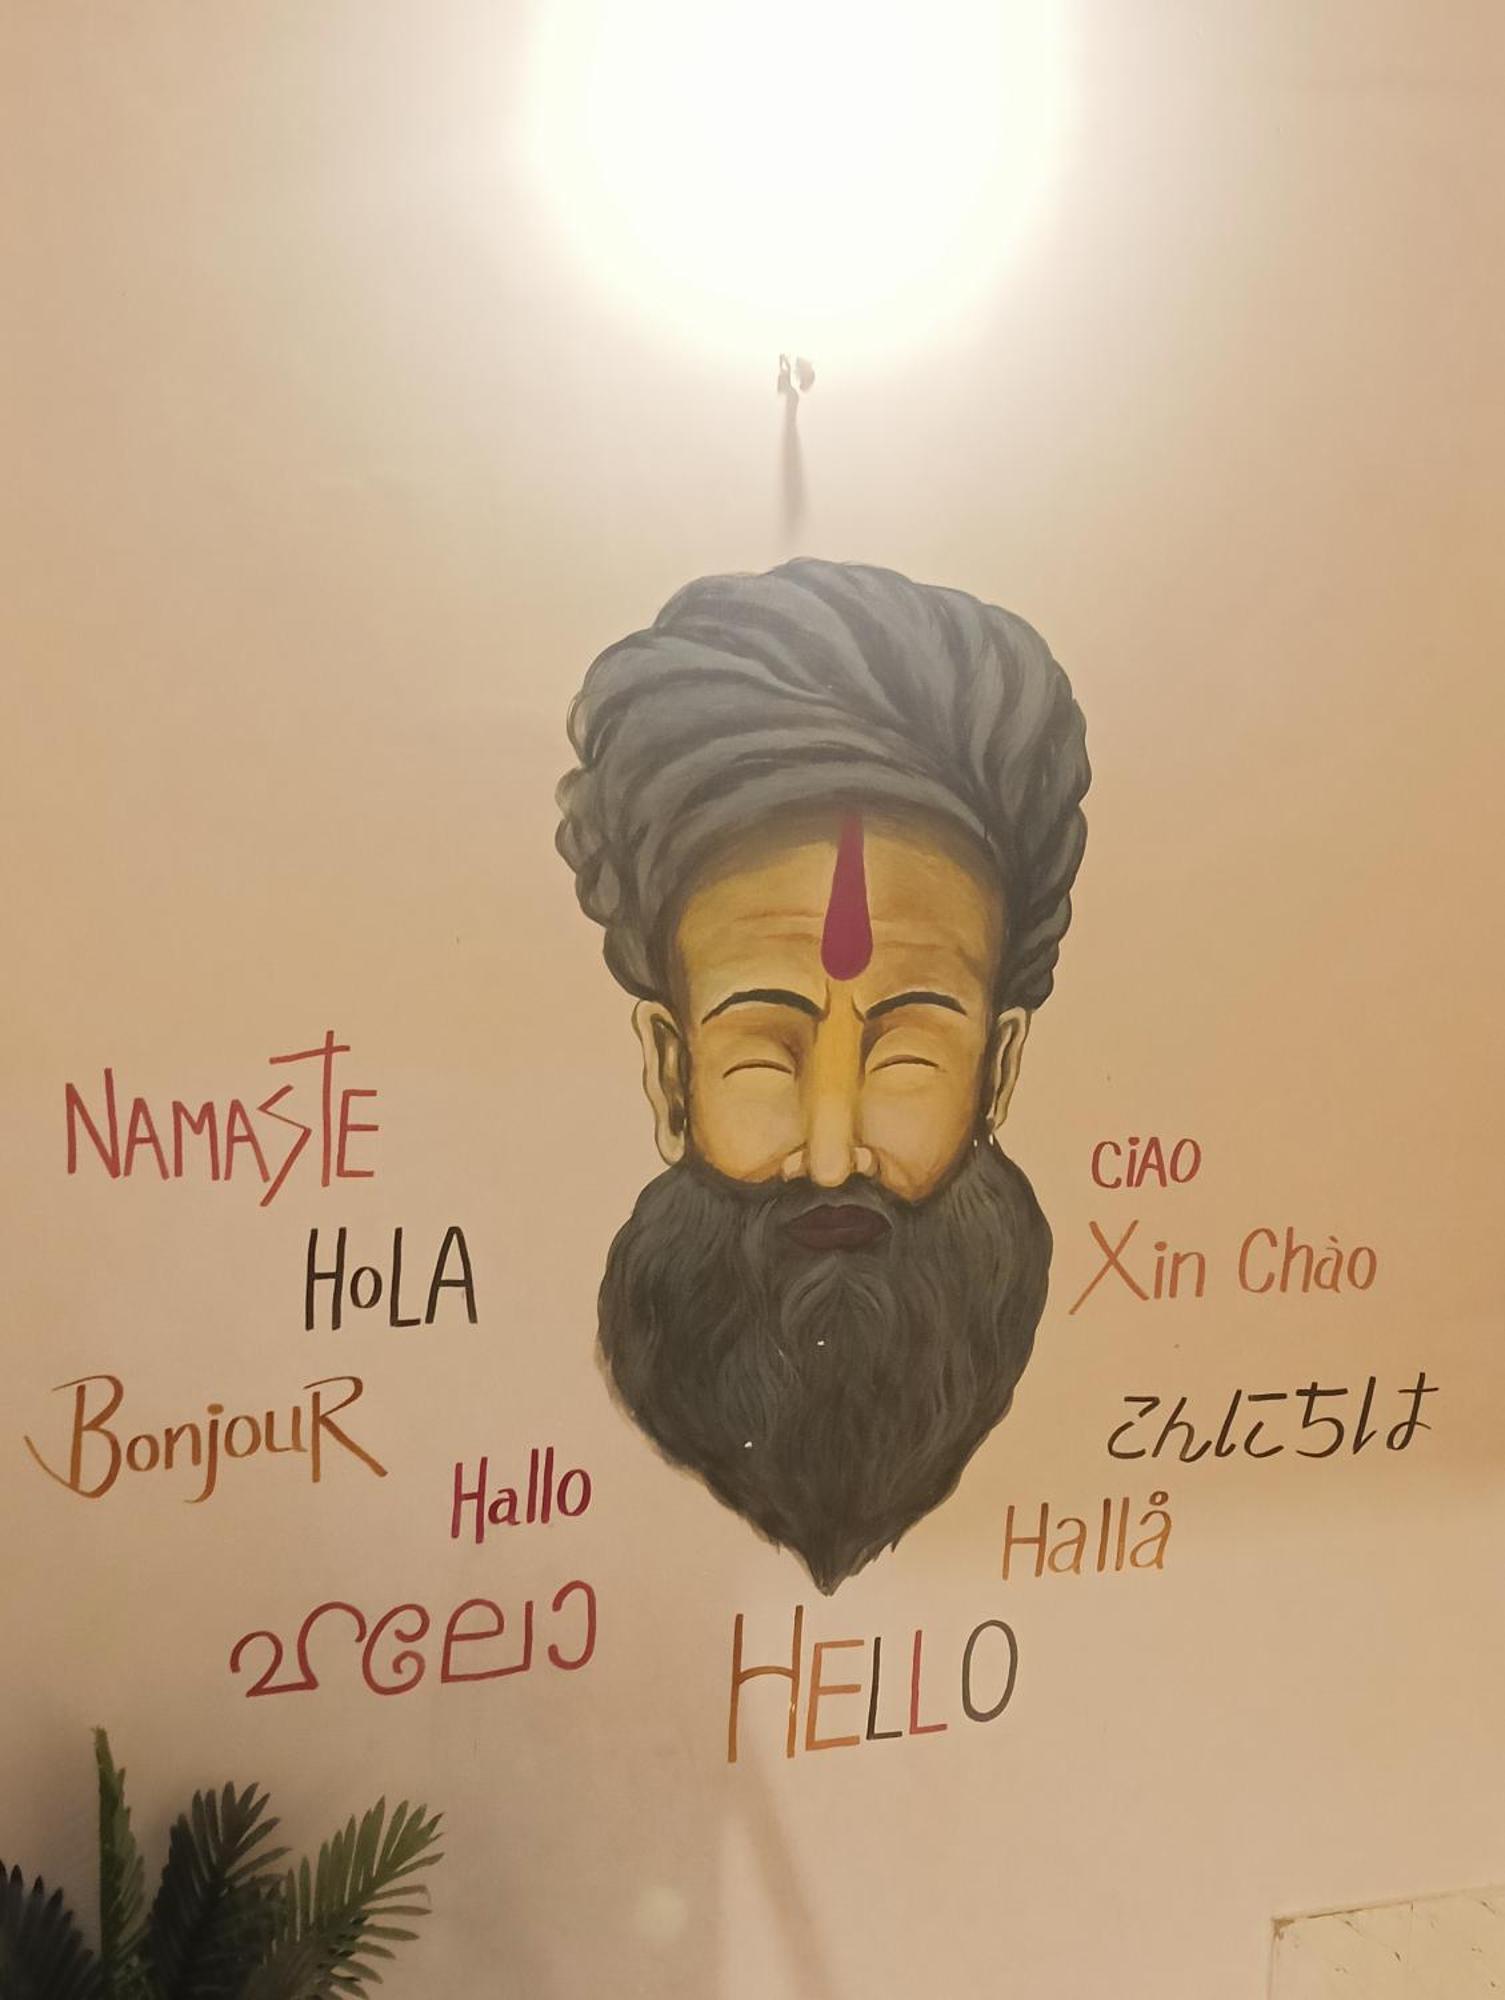 NAMASTE
HoLA
BonjouR
Hallo
ഹലോ
CiAO
Xin Chào
こんにちは
Hallå
HELLO